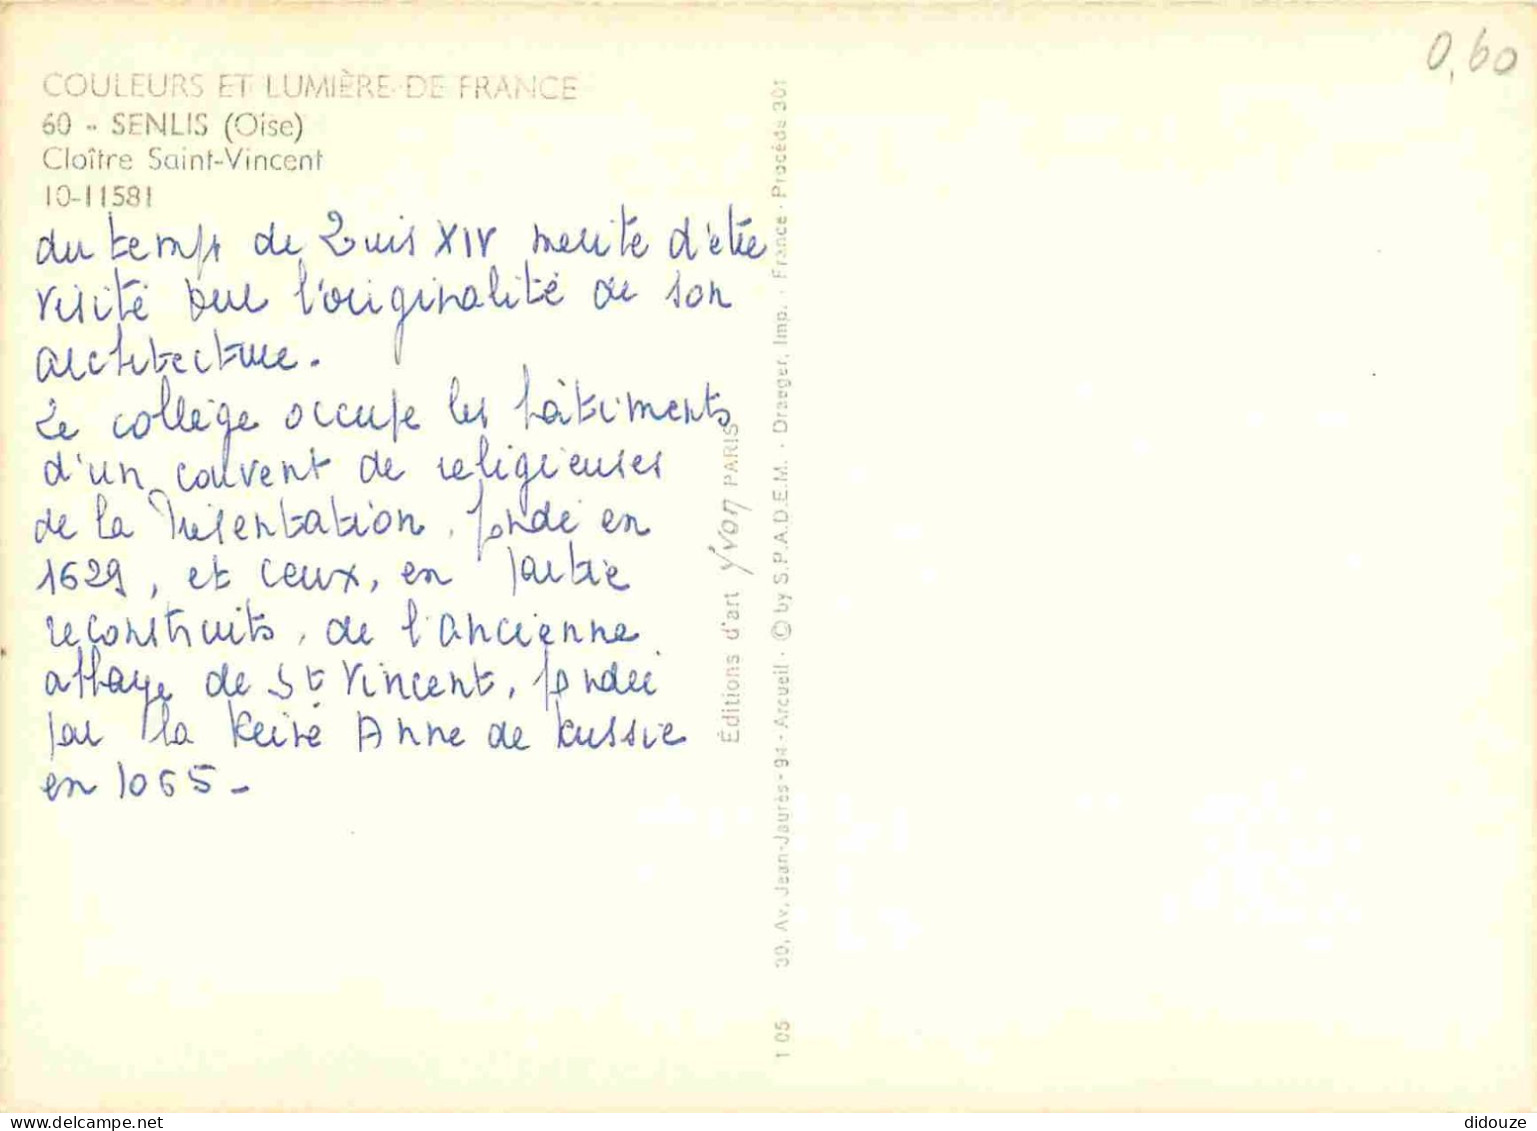 0,60
COULEURS ET LUMIÈRE DE FRANCE
60 - SENLIS (Oise)
Cloître Saint-Vincent
10-11581
du temps de Louis XIV merite d'être
visité pour l'originalité de son
architecture.
Le collège occupe les bâtiments
d'un couvent de religieuses
de la Présentation, fondé en
1629, et ceux, en partie
reconstruits, de l'ancienne
abbaye de St Vincent, fondée
par la Reine Anne de Russie
en 1065 -
Éditions d'art Yvon PARIS
30, Av. Jean-Jaurès - 94 - Arcueil · © by S.P.A.D.E.M. · Draeger, Imp. · France · Procédé 301
1 05
www.delcampe.net
didouze